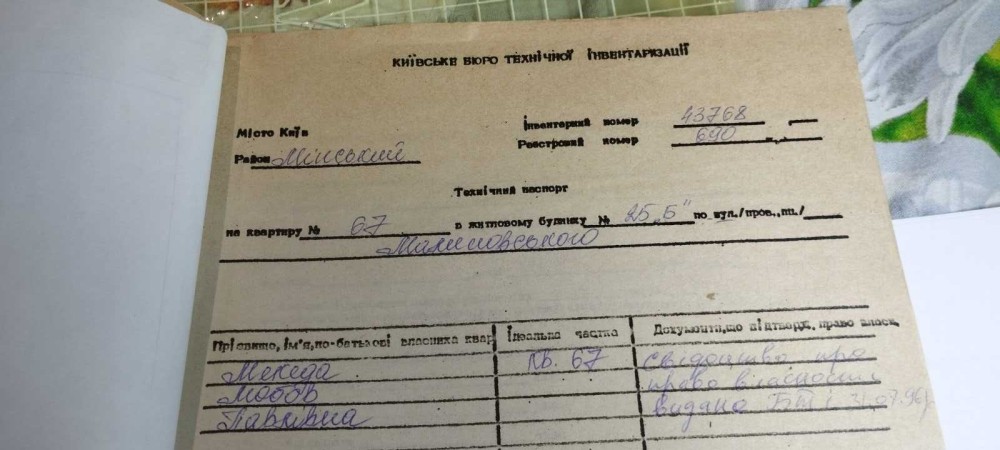 КИЇВСЬКЕ БЮРО ТЕХНІЧНОЇ ІНВЕНТАРИЗАЦІЇ
Місто Київ
Інвентарний номер 43768
Район Мінський
Реєстровий номер 690
Технічний паспорт
на квартиру № 67 в житловому будинку № 25 „Б" по вул./пров.,пл./
Малиновського
Прізвище, ім'я,по-батькові власника квар
Ідеальна частка
Документи,що підтвердж. право власн.
Мекеда
Любов
Павлівна
кв. 67
свідоцтво про
право власності
видано БТІ 31.07.96